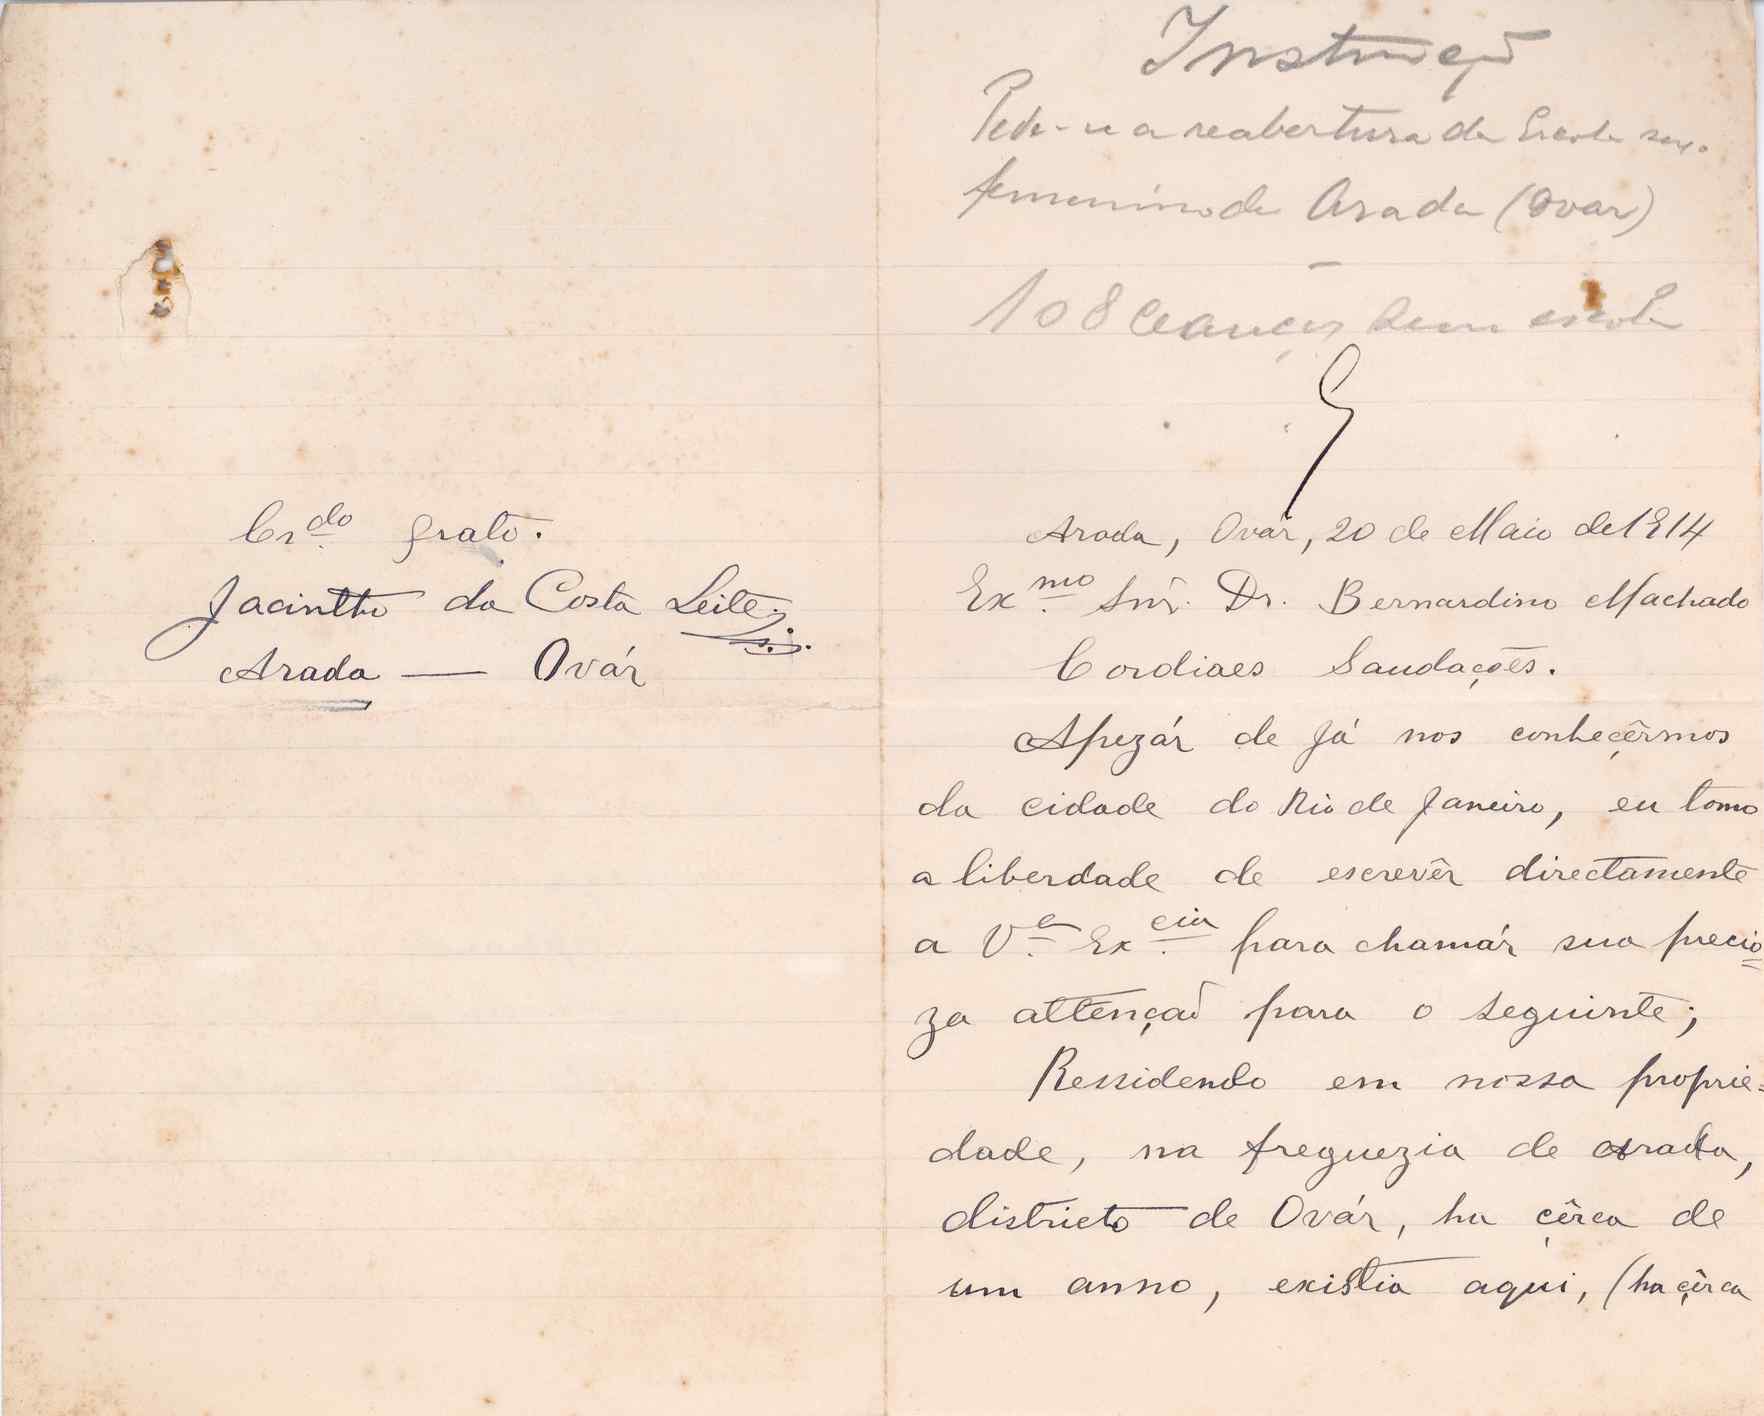 Cr.do grato.
Jacintho da Costa Leite
Arada — Ovár
Instrução
Pede-se a reabertura da Escola sex.
femenino de Arada (Ovar)
108 creanças sem escola
Arada, Ovár, 20 de Maio de 1914
Ex.mo Snr. Dr. Bernardino Machado
Cordiaes Saudações.
Apezár de já nos conheçêrmos
da cidade do Rio de Janeiro, eu tomo
a liberdade de escrevêr directamente
a V.a Ex.cia para chamár sua precio=
za attençaõ para o seguinte;
Ressidendo em nossa proprie=
dade, na freguezia de Arada,
districto de Ovár, ha çêrca de
um anno, existia aqui, (ha çêrca